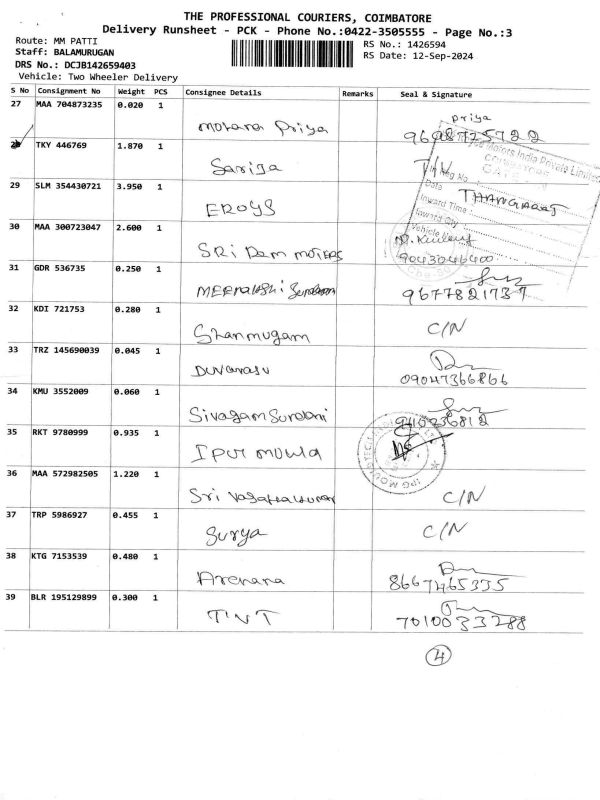 THE PROFESSIONAL COURIERS, COIMBATORE
Delivery Runsheet - PCK - Phone No.:0422-3505555 - Page No.:3
Route: MM PATTI RS No.: 1426594
Staff: BALAMURUGAN RS Date: 12-Sep-2024
DRS No.: DCJB142659403
Vehicle: Two Wheeler Delivery
S No Consignment No Weight PCS Consignee Details Remarks Seal & Signature
27 MAA 704873235 0.020 1 Priya Priya
TKY 446769 1.870 1
Motors India Private Limited
GATE
Reg No
Date
THANGARAJ
Inward Time
Inward Qty
Vehicle
29 SLM 354430721 3.950 1 EROYS
30 MAA 300723047 2.600 1 SRi Ram MOTERS
9043046400
31 GDR 536735 0.250 1 9677821737
32 KDI 721753 0.280 1 Shanmugam C/N
33 TRZ 145690039 0.045 1 09047366866
34 KMU 3552009 0.060 1
35 RKT 9780999 0.935 1
36 MAA 572982505 1.220 1 Sri C/N
37 TRP 5986927 0.455 1 Surya C/N
38 KTG 7153539 0.480 1 8667465335
39 BLR 195129899 0.300 1 TNT 7010033288
4